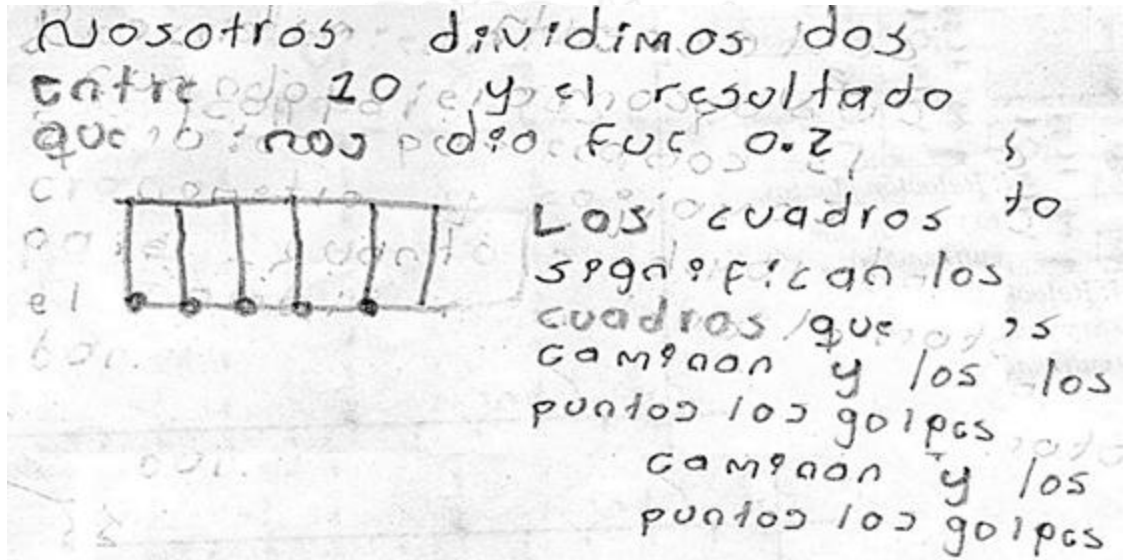 Nosotros dividimos dos
entre 10 y el resultado
que nos dio fue 0.2
Los cuadros to
significan los
cuadros que
caminan y los los
puntos los golpes
caminan y los
puntos los golpes